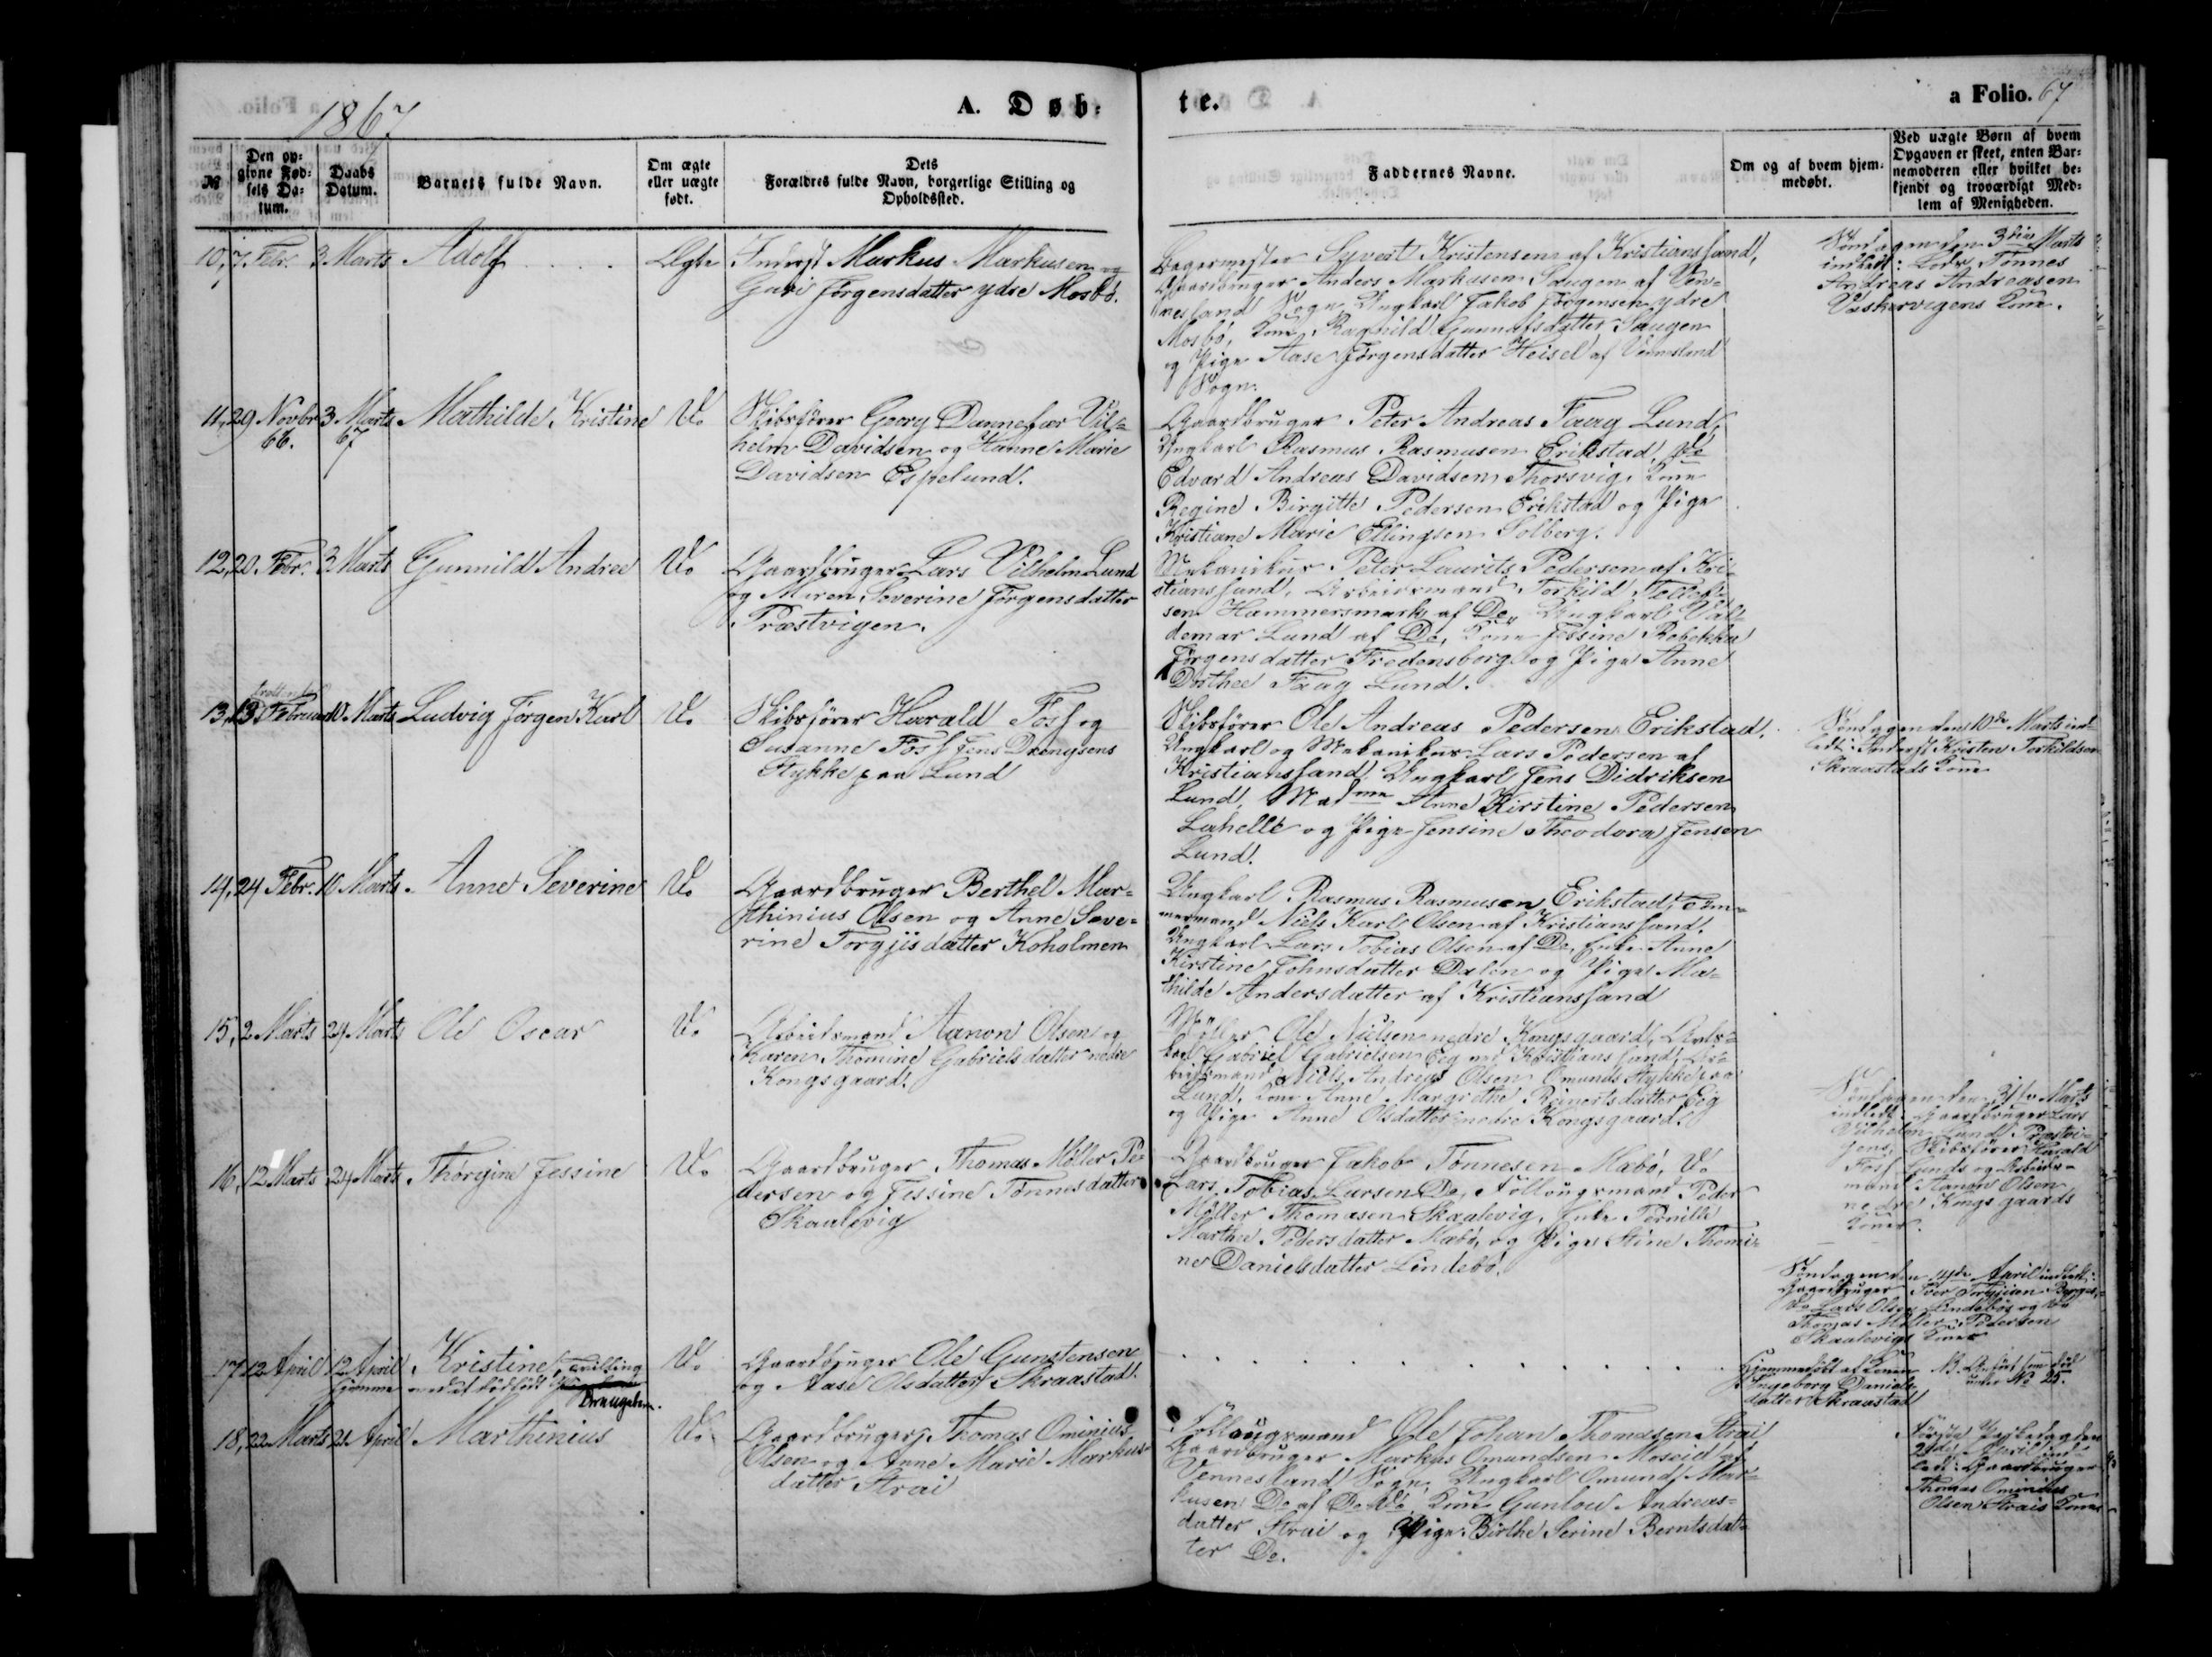 1867
A. Døb-
te.
a Folio. 67
№
Den op-
givne Fød-
sels Da-
tum.
Daabs
Datum.
Barnets fulde Navn.
Om ægte
eller uægte
født.
Dets
Forældres fulde Navn, borgerlige Stilling og
Opholdssted.
Faddernes Navne.
Om og af hvem hjem-
medøbt.
Ved uægte Børn af hvem
Opgaven er skeet, enten Bar-
nemoderen eller hvilket be-
kjendt og troværdigt Med-
lem af Menigheden.
10, 7. Febr. 3 Marts Adolf Ægte
Inderst Markus Markusen og
Guri Jørgensdatter ydre Mosbö.
Bagermester Syvert Kristensen af Kristianssand,
Gaardbruger Anders Markusen Saugen af Ven-
nesland Sogn, Ungkarl Jakob Jörgensen ydre
Mosbö, Kone Ragnild Gunnufsdatter Saugen
og Pige Aase Jörgensdatter Heisel af Vennesland
Sogn.
Söndagen den 3die Marts
indledt: Lods Tönnes
Andreas Andreasen
Væskervigens Kone.
11, 29 Novbr 66. 3 Marts 67 Mathilde Kristine Do
Skibsfører Georg Dannefær Vil-
helm Davidsen og Hanne Marie
Davidsen Espelund.
Gaardbruger Peter Andreas Faag Lund,
Ungkarl Rasmus Rasmusen Erikstad, Do
Edvard Andreas Davidsen Thorsvig, Kone
Regine Birgitte Pedersen Erikstad og Pige
Kristiane Marie Ellingsen Solberg.
12, 20. Febr. 3 Marts Gunnild Andrea Do
Gaardbruger Lars Vilhelm Lund
og Maren Severine Jörgensdatter
Præstvigen.
Mekanikus Peter Laurits Pedersen af Kri-
stianssand, Arbeidsmand Torkild Tellef-
sen Hammersmark af Do, Ungkarl Val-
demar Lund af Do, Kone Jessine Rebekka
Jörgensdatter Fredensborg og Pige Anne
Dorthea Faag Lund.
13, 13 Februar 10 Marts Ludvig Jørgen Karl Do
Skibsfører Harald Foss og
Susanne Foss Jens Drengsens
Stykke paa Lund
Skibsfører Ole Andreas Pedersen Erikstad,
Ungkarl og Mekanikus Lars Pedersen af
Kristianssand, Ungkarl Jens Didriksen
Lund, Madme Anne Kirstine Pedersen
Lahelle og Pige Jensine Theodora Jensen
Lund.
Söndagen den 10de Marts ind-
ledt: Inderst Kristen Terkildsen
Skraastads Kone
14, 24 Febr. 10 Marts Anne Severine Do
Gaardbruger Berthel Mar-
thinius Olsen og Anne Seve-
rine Torgjisdatter Koholmen
Ungkarl Rasmus Rasmusen Erikstad, Töm-
mermand Niels Karl Olsen af Kristianssand,
Ungkarl Lars Tobias Olsen af Do, Enke Anne
Kirstine Johnsdatter Dalen og Pige Ma-
thilde Andersdatter af Kristianssand
15, 2 Marts 24 Marts Ole Oscar Do
Arbeidsmand Aanon Olsen og
Karen Thomine Gabrielsdatter nedre
Kongsgaard.
Möller Ole Nielsen nedre Kongsgaard,
Gabriel Gabrielsen Eeg ved Kristianssand, Ar-
beidsmand Niels Andreas Olsen Omunds Stykke paa
Lund, Kone Anne Margrethe Reinertsdatter Eeg
og Pige Anne Olsdatter nedre Kongsgaard.
Söndagen den 31te Marts
indledt: Gaardbruger Lars
Vilhelm Lund Præstvi-
gens, Skibsfører Harald
Foss Lunds og Arbeids-
mand Aanon Olsen
nedre Kongsgaards
Koner.
16, 12 Marts 24 Marts Thorgine Jessine Do
Gaardbruger Thomas Möller Pe-
dersen og Jessine Tönnesdatter
Skaalevig
Gaardbruger Jakob Tönnesen Mæbö, Do
Lars Tobias Larsen Do, Tollougsmand Peder
Möller Thomasen Skaalevig, Enke Pernille
Marthea Pedersdatter Mæbö, og Pige Stine Thomi-
ne Danielsdatter Lindebö.
Söndagen den 14de April indledt:
Gaardbruger Iver Torgjisen Berges,
Do Lars Olsen Lindebös og Do
Thomas Möller Pedersen
Skaalevigs Koner
17 12 April 12 April hjemme Kristine, Tvilling
med et dødfødt Drengebarn. Do
Gaardbruger Ole Gunstensen
og Aase Olsdatter Skraastad.
Hjemmedøbt af Konen
Ingeborg Daniels-
datter Skraastad
NB. Anført som död
under No 25.
18, 22 Marts 21 April Marthinius Do
Gaardbruger Thomas Ominius
Olsen og Anne Marie Markus-
datter Strai
Tollougsmand Ole Johan Thomasen Strai
Gaardbruger Markus Omundsen Moseid af
Vennesland Sogn, Ungkarl Omund Mar-
kusen Do af Do, Kone Gunlou Andreas-
datter Strai og Pige Birthe Serine Berntsdat-
ter Do.
Første Paaskedag den
21de April ind-
ledt: Gaardbruger
Thomas Ominius
Olsen Strais Kone